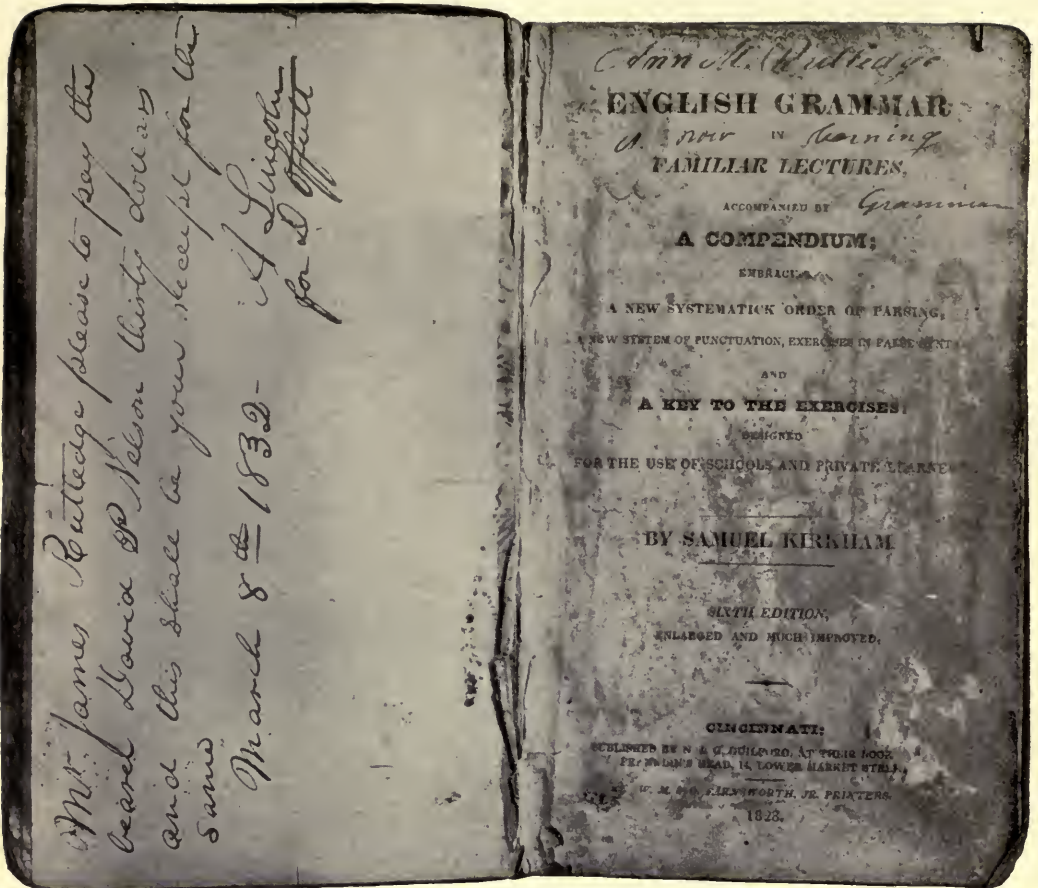 Mr. James Rutledge please to pay the
bearer David P Nelson thirty dollars
and this shall be your receipt for the
same
March 8th 1832 -
A Lincoln
for D Offutt
Ann M. Rutledge
ENGLISH GRAMMAR
is now IN learning
FAMILIAR LECTURES,
ACCOMPANIED BY Grammar
A COMPENDIUM;
EMBRACING
A NEW SYSTEMATICK ORDER OF PARSING,
A NEW SYSTEM OF PUNCTUATION, EXERCISES IN FALSE SYNTAX
AND
A KEY TO THE EXERCISES:
DESIGNED
FOR THE USE OF SCHOOLS AND PRIVATE LEARNERS
BY SAMUEL KIRKHAM
SIXTH EDITION,
ENLARGED AND MUCH IMPROVED.
CINCINNATI:
PUBLISHED BY N. & G. GUILFORD, AT THEIR BOOK
HEAD, 14, LOWER MARKET STREET,
FARNSWORTH, JR. PRINTERS.
1828.